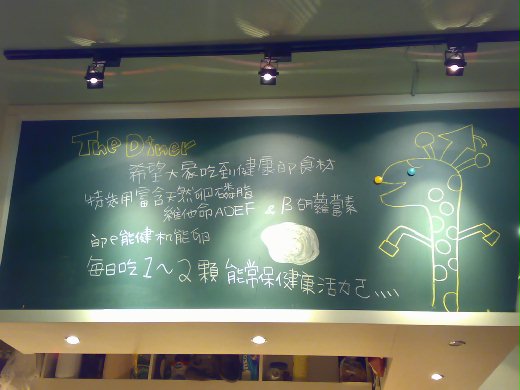 The Diner
希望大家吃到健康的食材
特選用富含天然卵磷脂
維他命ADEF & β胡蘿蔔素
的e能健和能卵
每日吃1~2顆 能常保健康活力